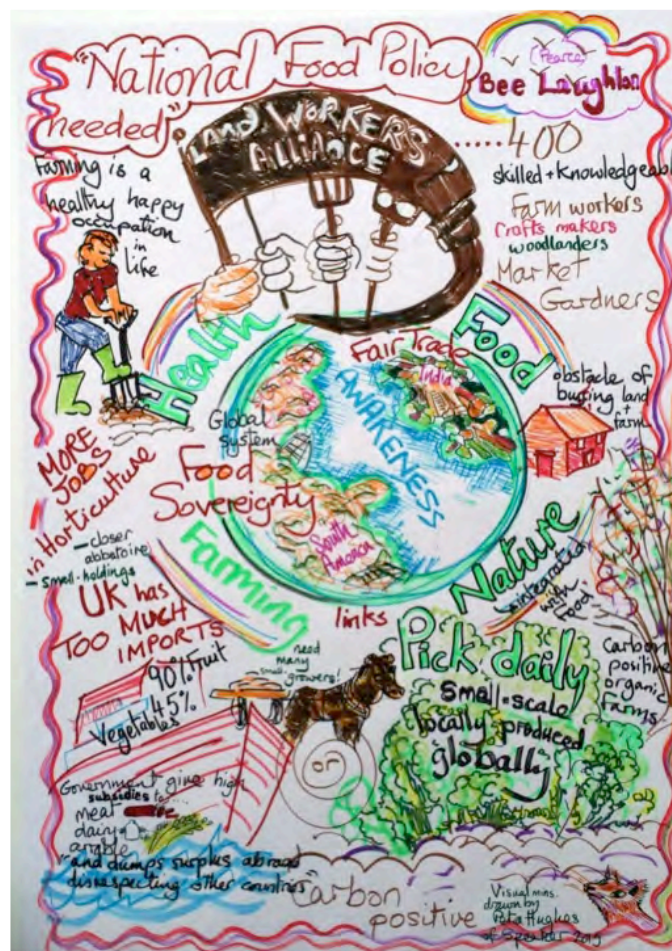 "National Food Policy
needed"
(Pearce)
Bee Laughton
LAND WORKERS
ALLIANCE
.....400
skilled + knowledgeable
Farm workers
Crafts makers
woodlanders
Market
Gardners
Farming is a
healthy happy
occupation
in
life
Health
Food
Fair Trade
India
AWARENESS
obstacle of
buying land
+
farm
Global
system
Food
Sovereignty
South
America
MORE
JOBS
in Horticulture
- closer
abbatoire
- small-holdings
Farming
links
Nature
integrated
with
food
UK has
TOO MUCH
IMPORTS
90% Fruit
45%
Vegetables
need
many
small
growers!
or
Pick daily
small-scale
locally produced
globally
Carbon
positive
organic
farms
Government give high
subsidies to
meat
dairy
arable
"and dumps surplus abroad
disrespecting other countries"
Carbon
positive
Visual mins.
drawn by
Hughes
2019